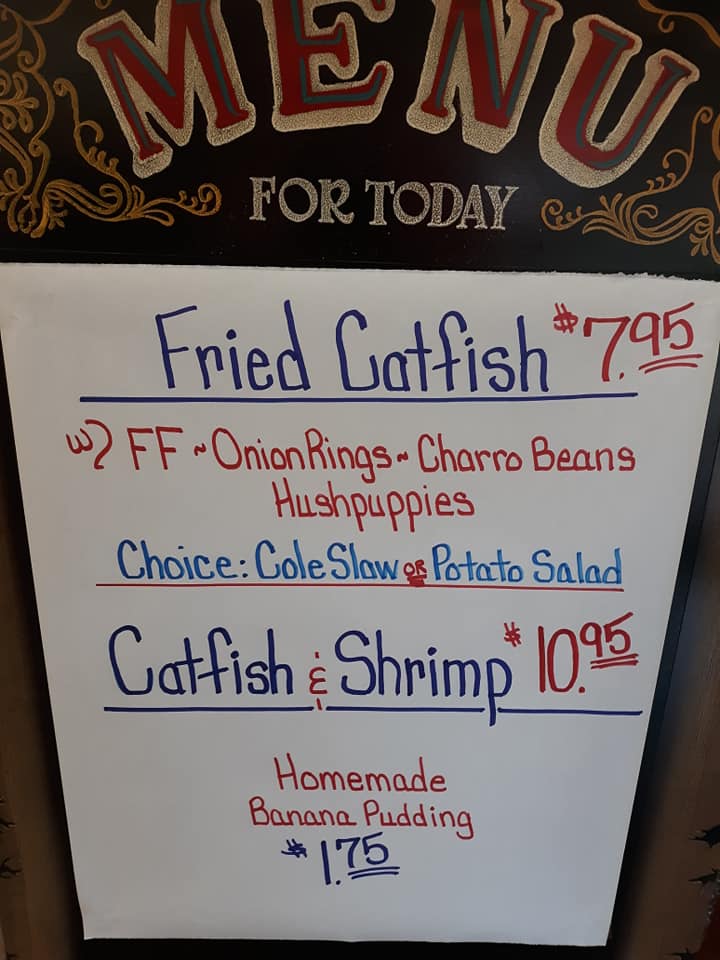 MENU
FOR TODAY
Fried Catfish $7.95
w/ FF ~ Onion Rings ~ Charro Beans
Hushpuppies
Choice: Cole Slaw OR Potato Salad
Catfish & Shrimp $10.95
Homemade
Banana Pudding
$1.75